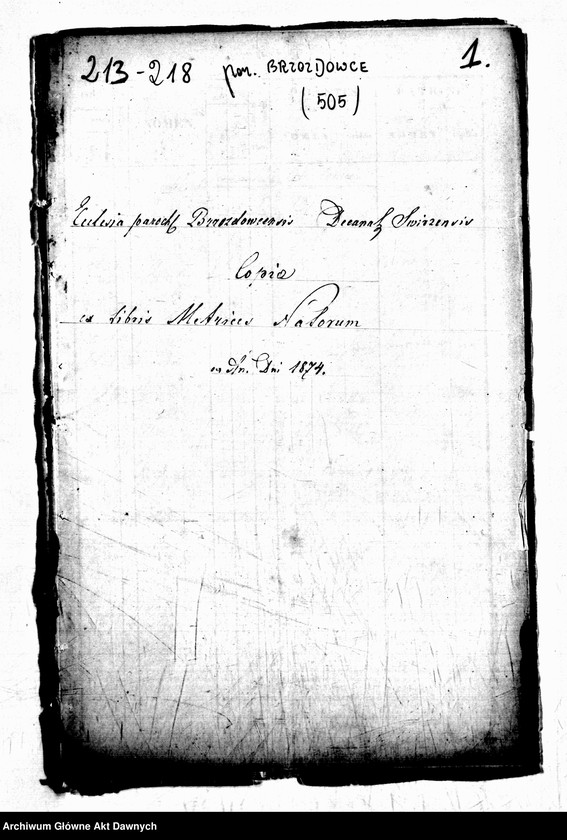 213-218 par. BRZOZDOWCE 1.
(505)
Ecclesia paroch Brzozdowcensis Decanat Swirzensis
Copia
ex libris Metrices Natorum
ex Dni 1874.
Archiwum Główne Akt Dawnych